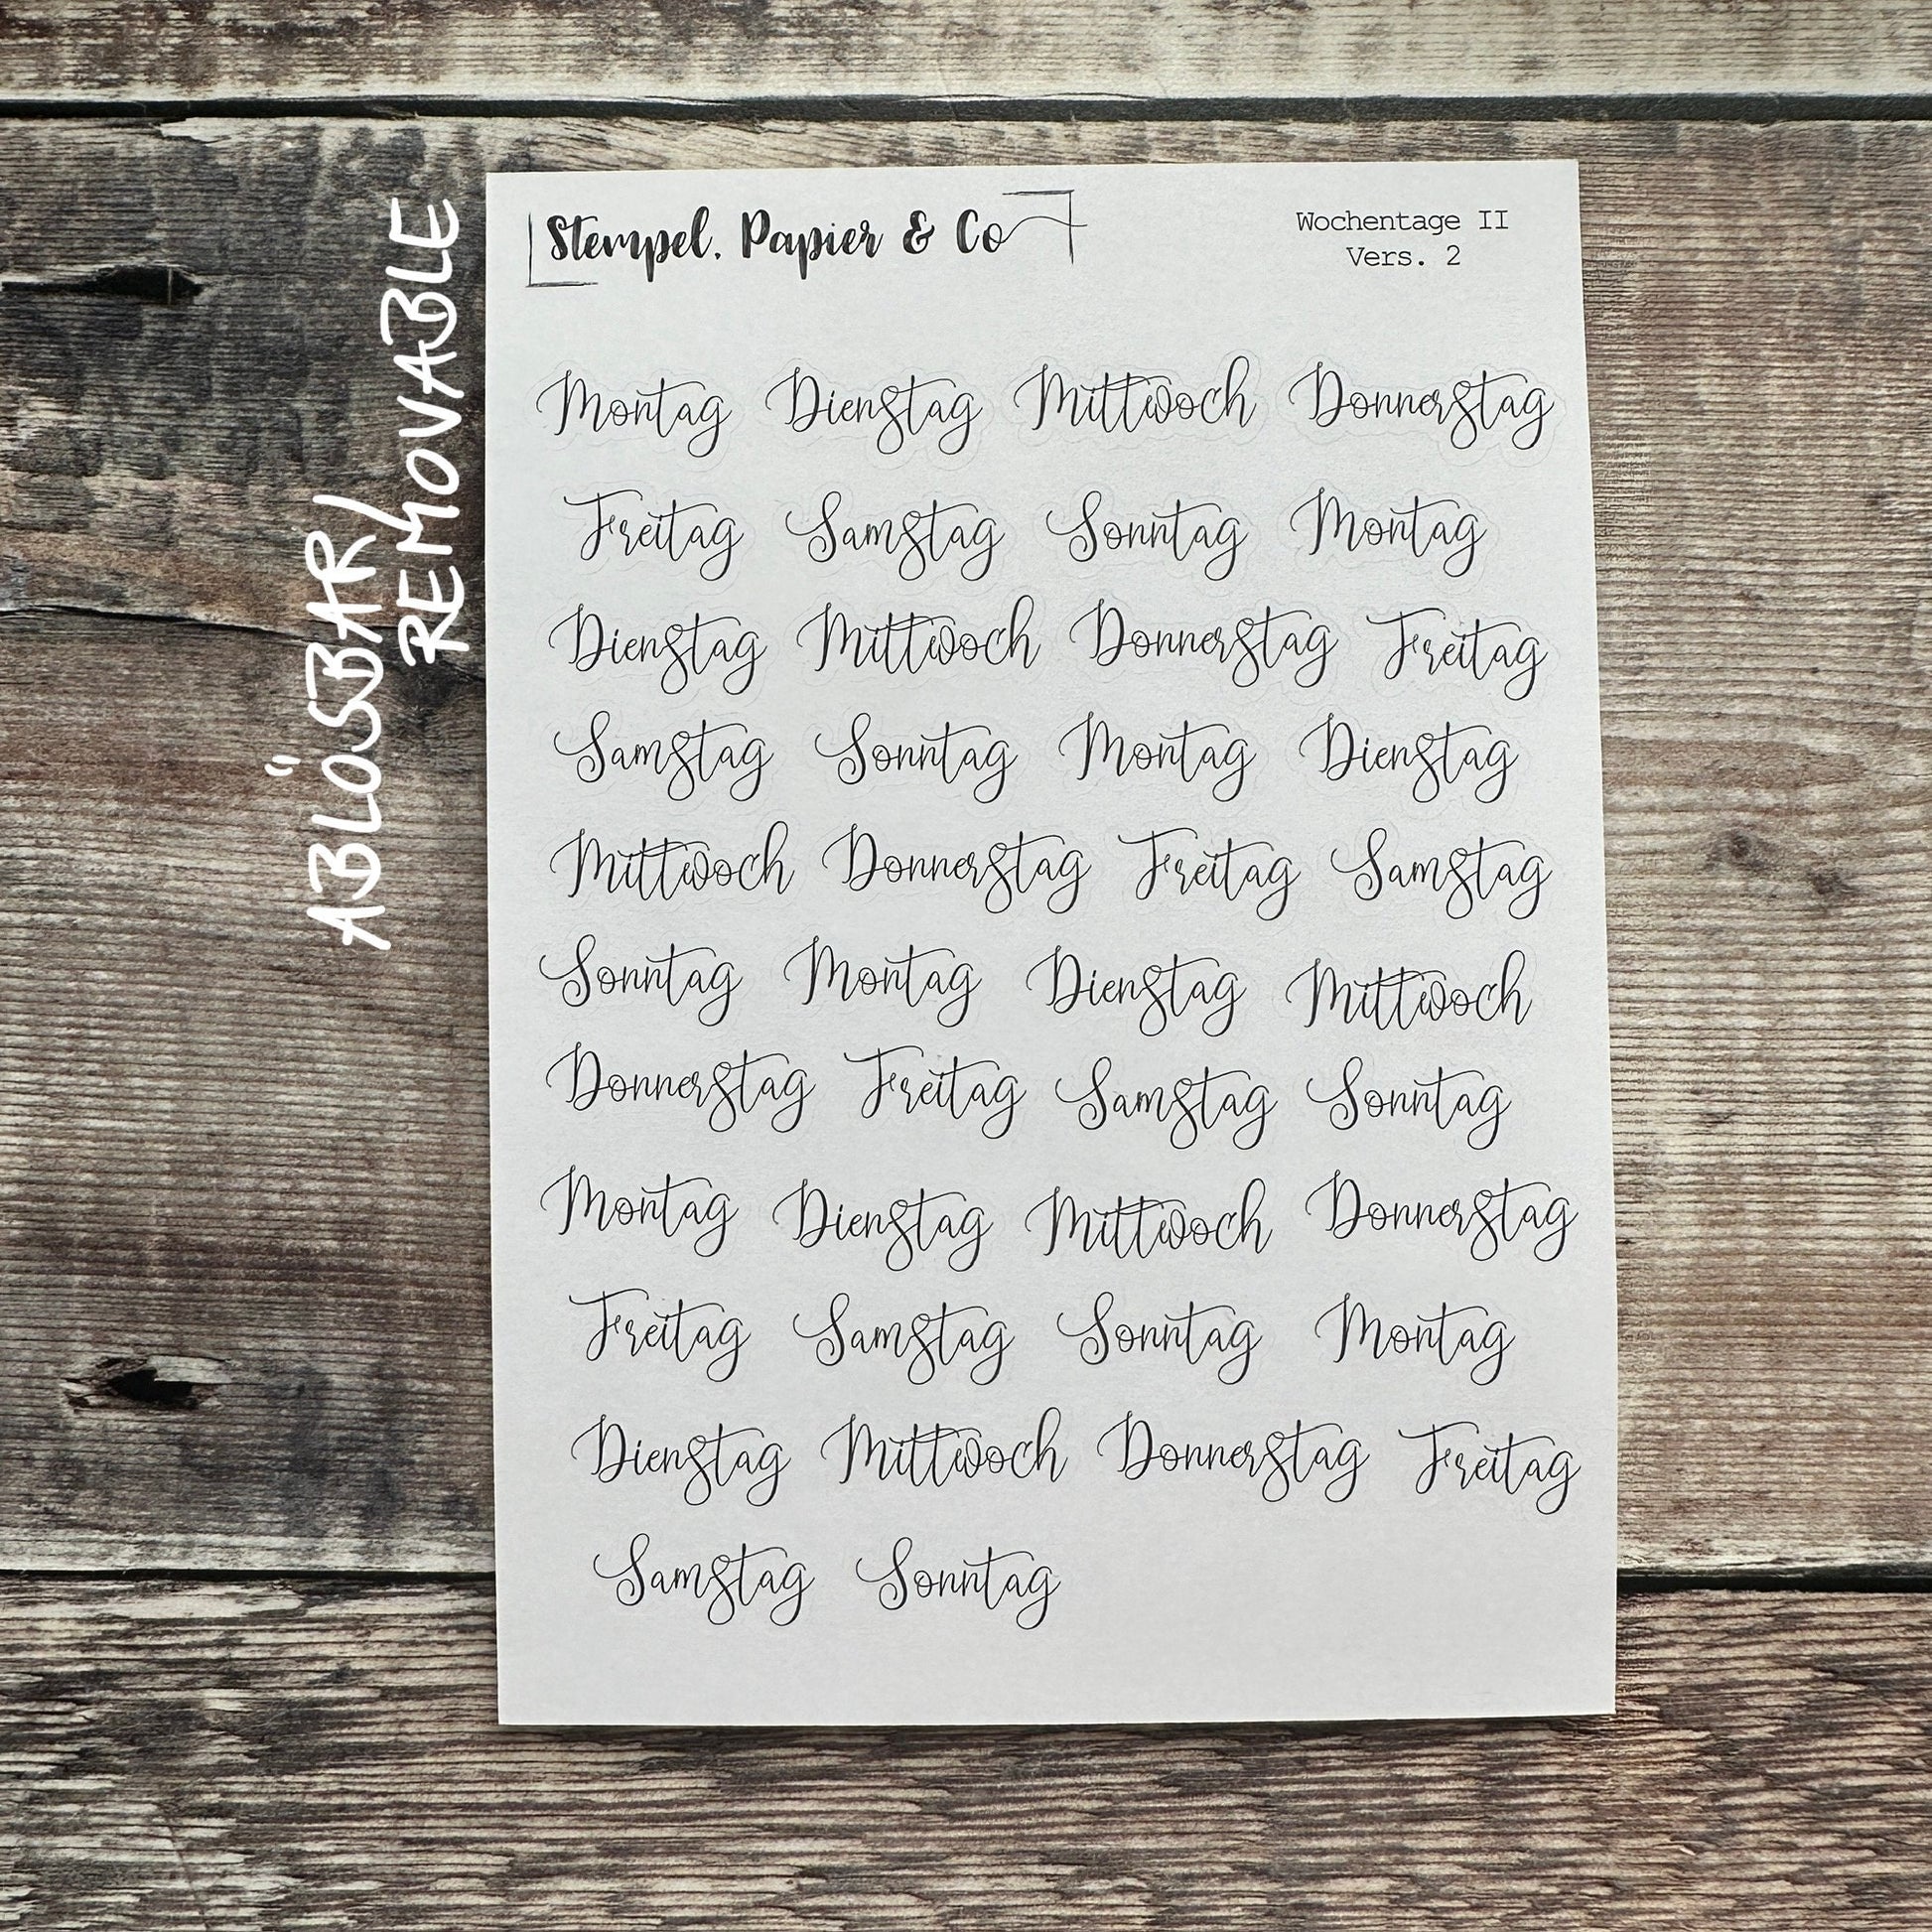 ABLÖSBAR/
REMOVABLE
Stempel, Papier & Co
Wochentage II
Vers. 2
Montag Dienstag Mittwoch Donnerstag
Freitag Samstag Sonntag Montag
Dienstag Mittwoch Donnerstag Freitag
Samstag Sonntag Montag Dienstag
Mittwoch Donnerstag Freitag Samstag
Sonntag Montag Dienstag Mittwoch
Donnerstag Freitag Samstag Sonntag
Montag Dienstag Mittwoch Donnerstag
Freitag Samstag Sonntag Montag
Dienstag Mittwoch Donnerstag Freitag
Samstag Sonntag